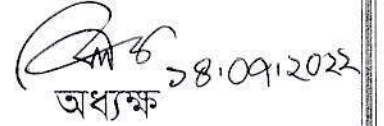 ১৪.০৭.২০২২
অধ্যক্ষ